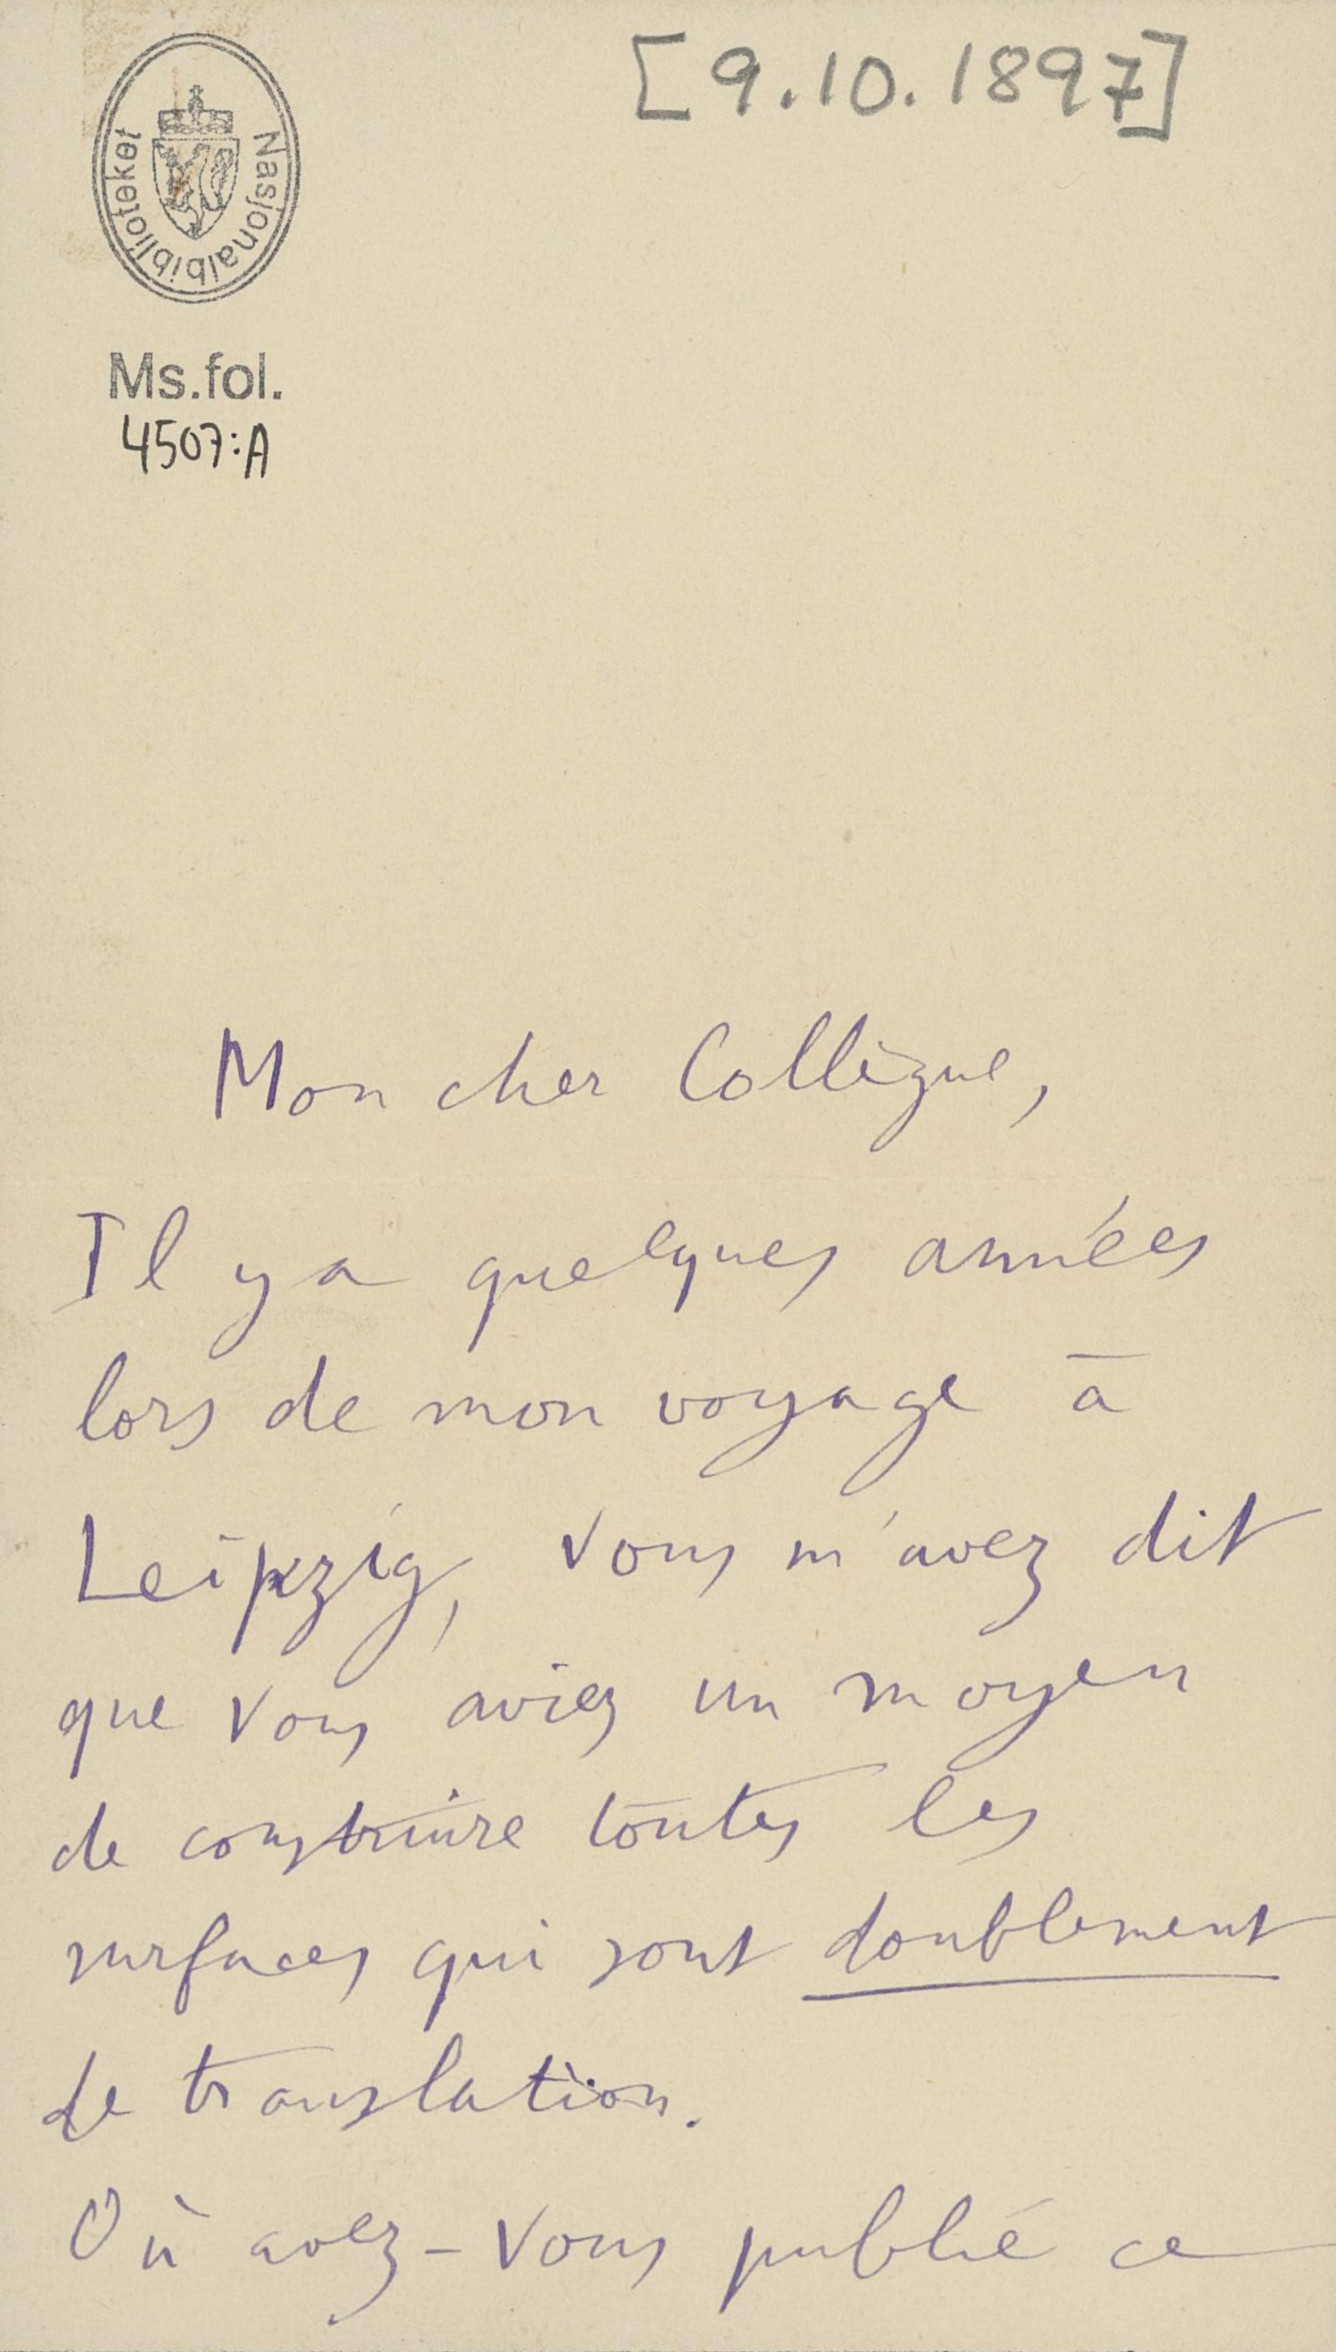 [9.10.1897]
Nasjonalbiblioteket
Ms.fol.
4507:A
Mon cher Collègue,
Il y a quelques années
lors de mon voyage à
Leipzig, vous m'avez dit
que vous aviez un moyen
de construire toutes les
surfaces qui sont doublement
de translation.
Où avez-vous publié ce